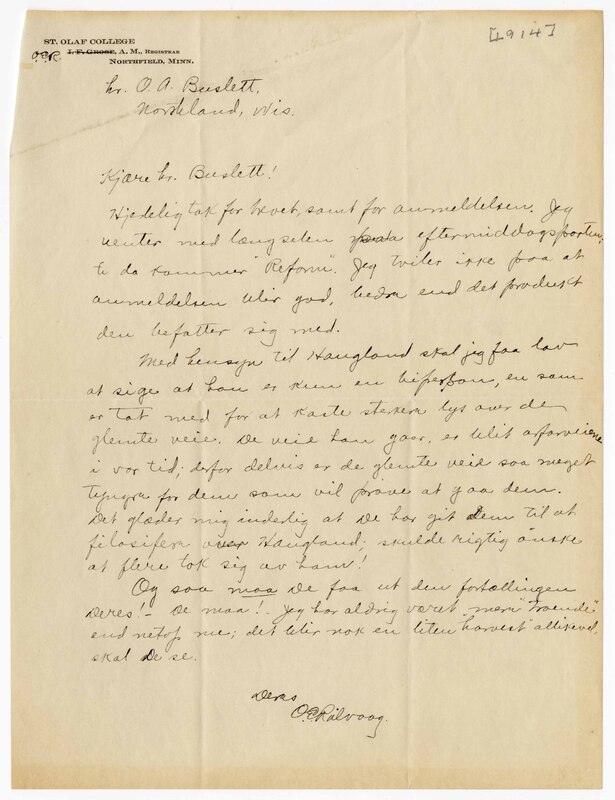 [1914]
ST. OLAF COLLEGE
O.E.R. I. F. GROSE, A. M., REGISTRAR
NORTHFIELD, MINN.
hr. O. A. Buslett,
Northland, Wis.
Kjære hr. Buslett!
Hjedelig tak for brevet, samt for anmeldelsen. Jeg
venter med længselen paa eftermiddagsposten;
da kommer "Reform". Jeg tviler ikke paa at
anmeldelsen blir god, bedre end det produkt
den befatter sig med.
Med hensyn til Haugland skal jeg faa lov
at sige at han er kun en biperson, en som
er tat med for at kaste sterkere lys over de
glemte veie. De veie han gaar, er blit alfarveiene
i vor tid; derfor delvis er de glemte veie saa meget
tyngre for dem som vil prøve at gaa dem.
Det glæder mig inderlig at De har git dem til at
filosofere over Haugland; skulde rigtig ønske
at flere tok sig av ham!
Og saa maa De faa ut den fortællingen
Deres! - De maa! Jeg har aldrig været "mere troende"
end netop nu; det blir nok en liten "harvest" allikevel,
skal De se.
Deres
O.E. Rölvaag.